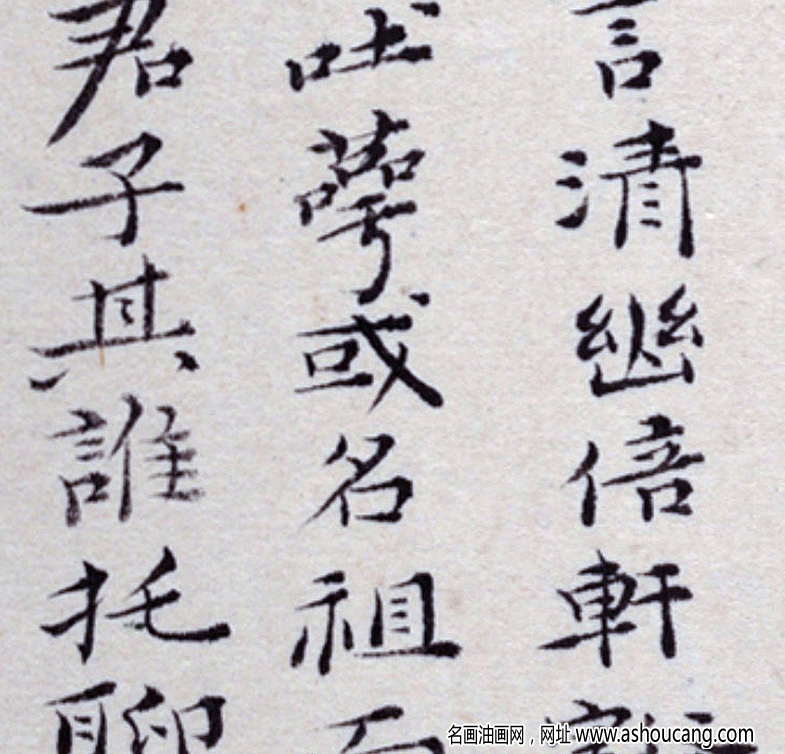 言清幽倍軒
吐萼或名祖而
君子其誰托聊
名画油画网，网址 www.ashoucang.com